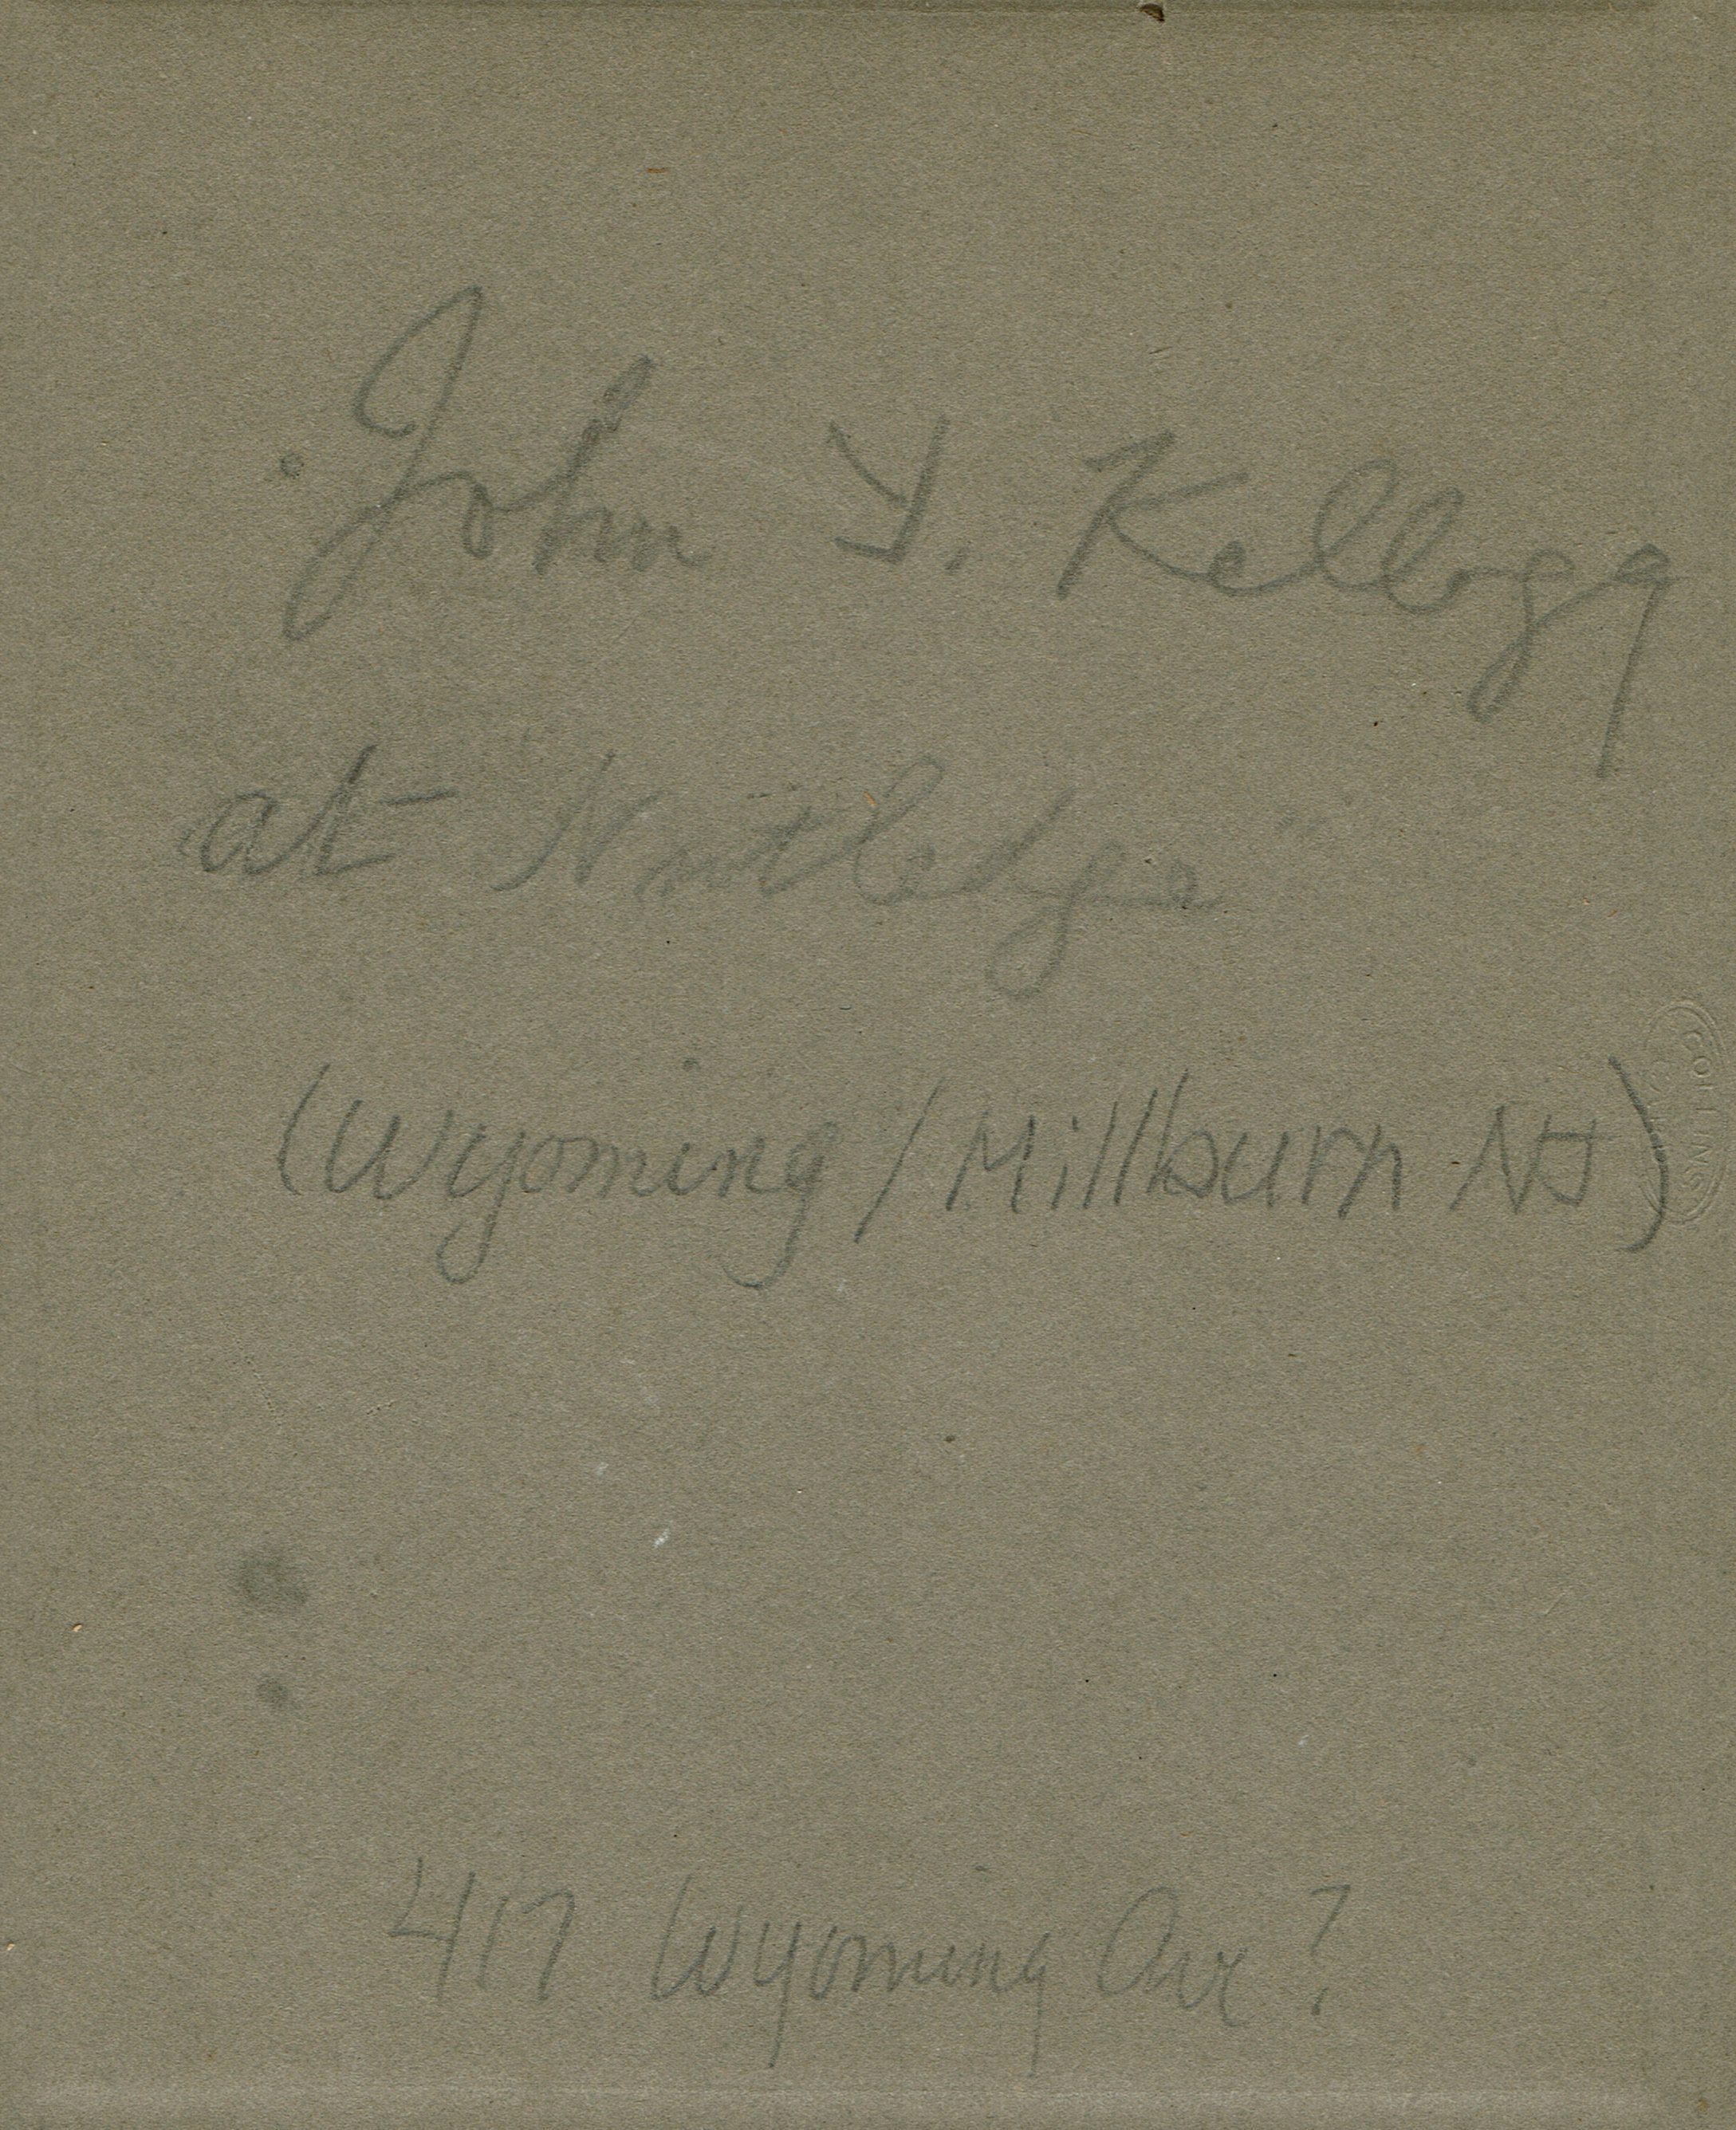 John Y. Kellogg
at "Nutledge"
(Wyoming / Millburn NJ)
COLLINS
417 Wyoming Ave ?